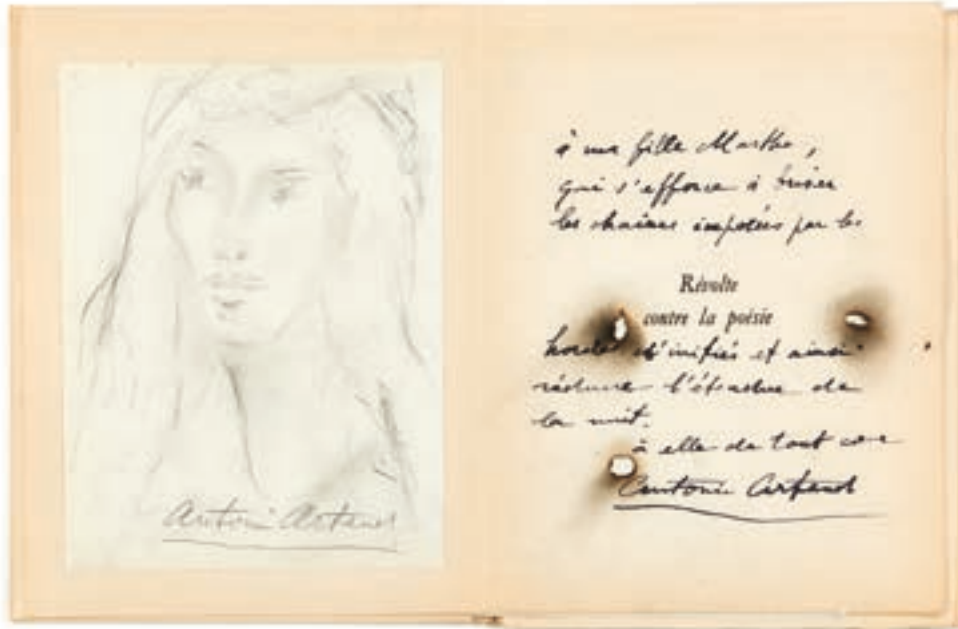 Antonin Artaud
à ma fille Marthe,
qui s'efforce à briser
les chaînes imposées par les
Révolte
contre la poésie
hordes d'initiés et ainsi
réduire l'étendue de
la nuit.
à elle de tout cœur
Antonin Artaud